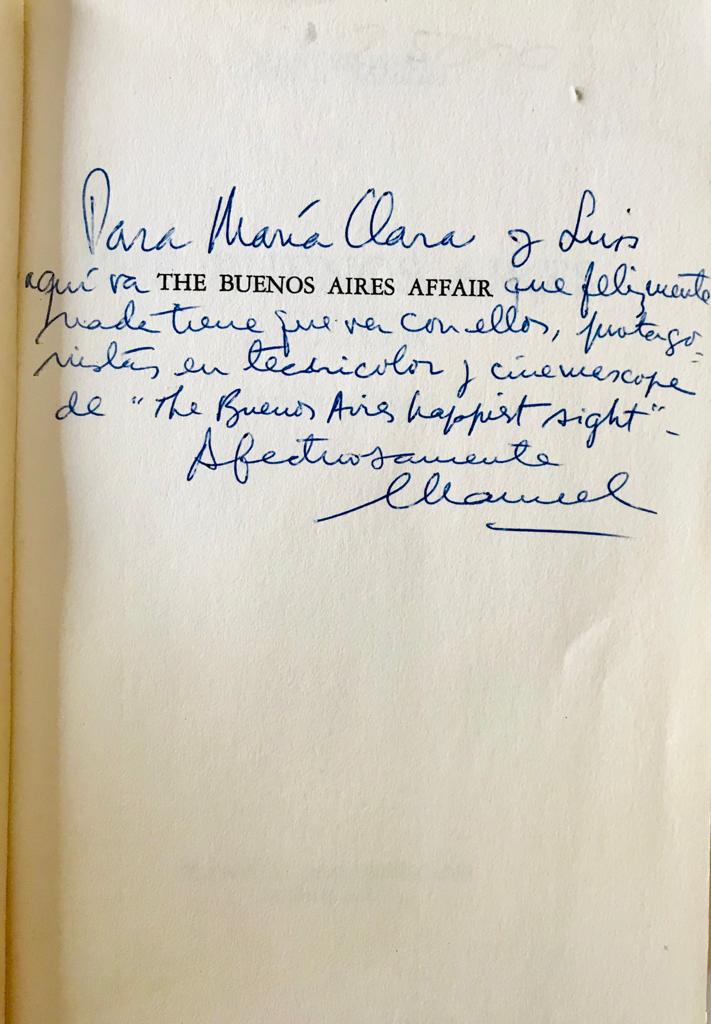 Para María Clara y Luis
aquí va THE BUENOS AIRES AFFAIR que felizmente
nada tiene que ver con ellos, protago-
nistas en tecnicolor y cinemascope
de "The Buenos Aires happiest sight"-
Afectuosamente
Manuel